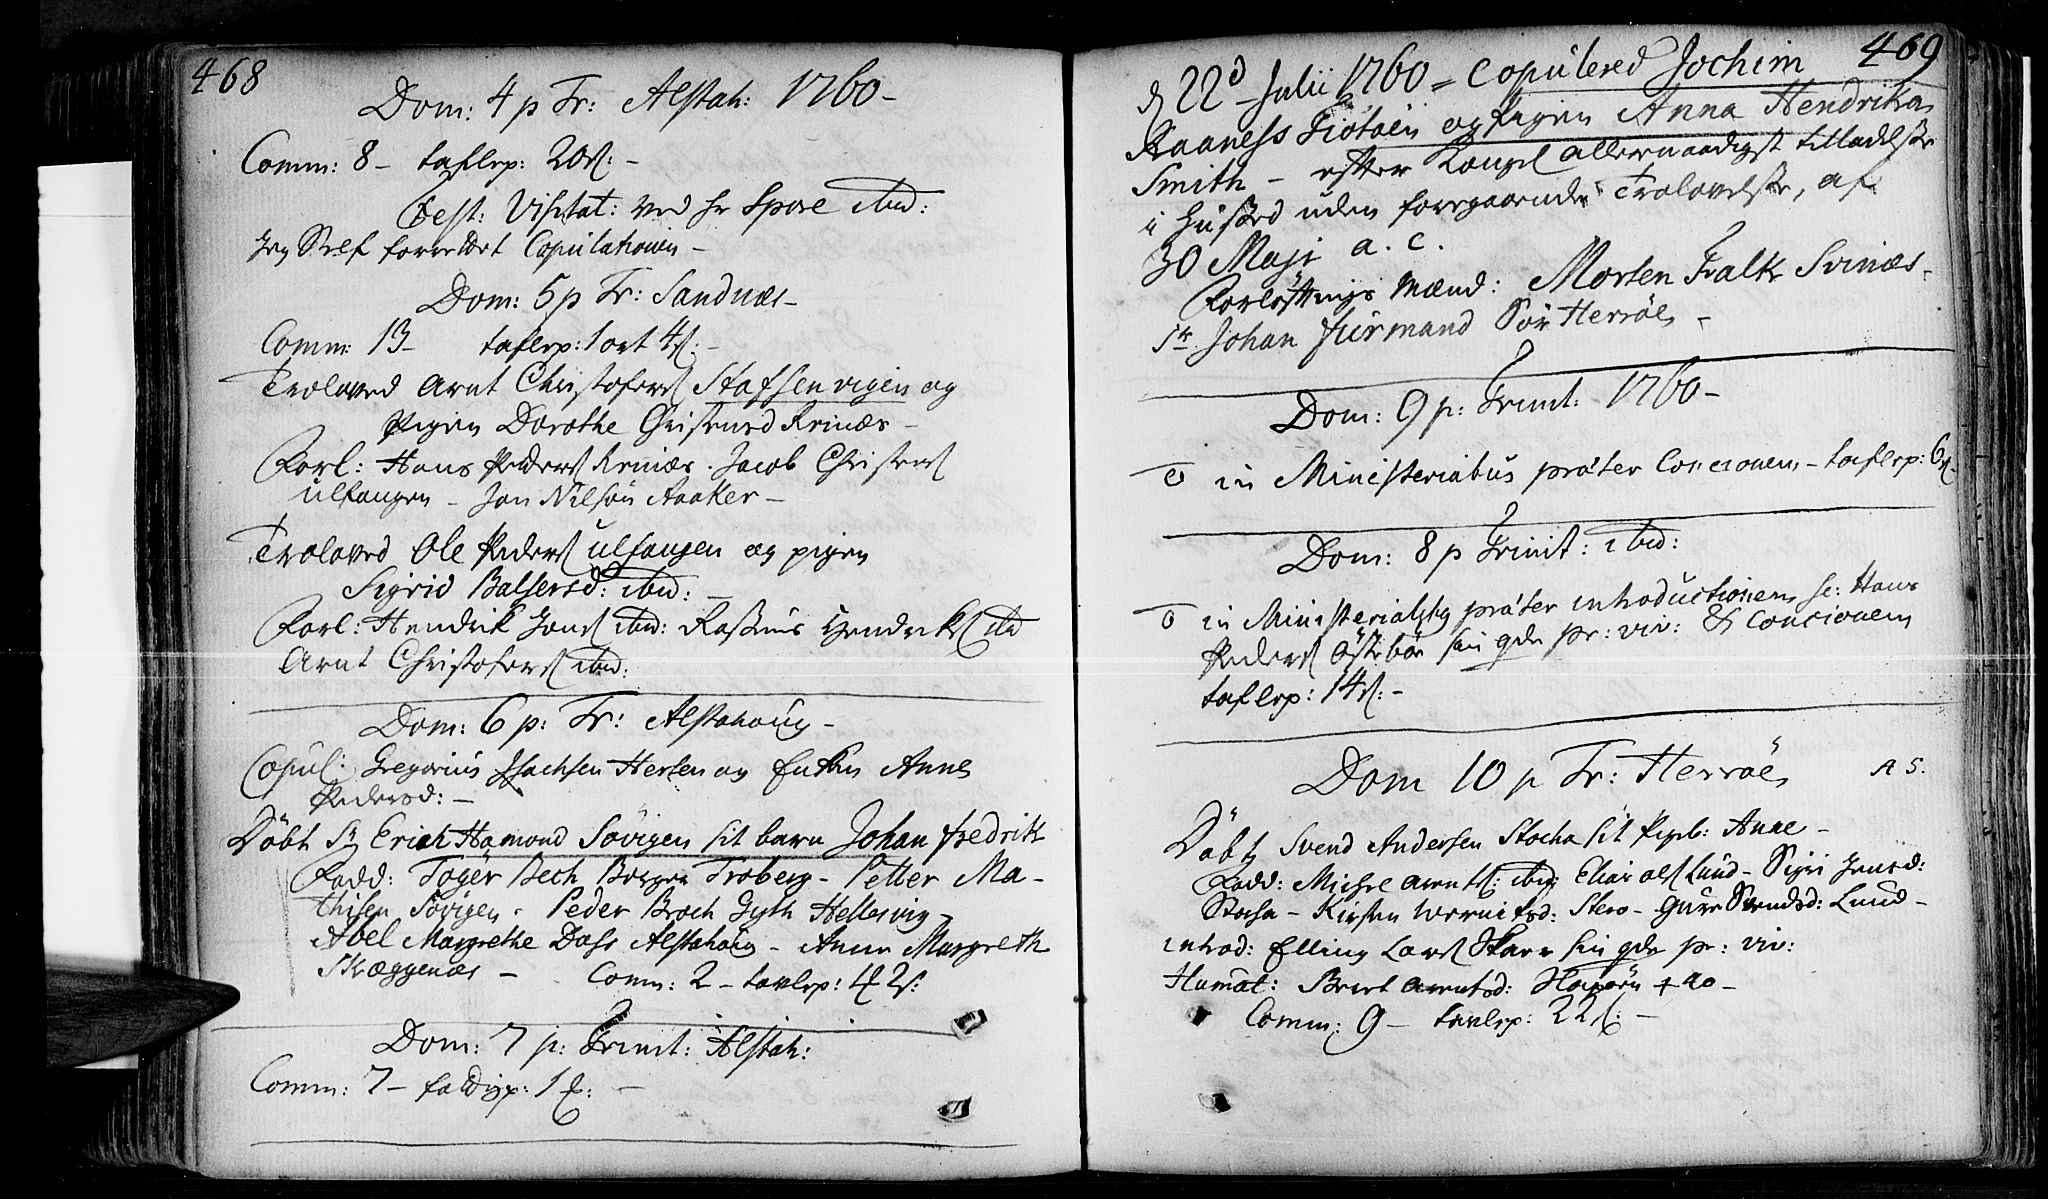 468
Dom: 4 p Tr: Alstah: 1760 -
Comm: 8 - taflrp: 20 s: -
Best: Visitat: ved hr Spore ibid:
Jeg Self forrettet Copulationen -
Dom: 5 p Tr: Sandnæs -
Comm: 13 - taflrp: 1 ort 4 s: -
Troloved Arnt Christofers Stafsenvigen og
Pigen Dorothe Christensd Reinæs -
Forl: Hans Peders Reinæs. Jacob Christens
Ulfangen - Jon Nilsøn Aaker -
Troloved Ole Peders Ulfangen og pigen
Sigrid Baltzersd: ibid: -
Forl: Hendrik Jons ibid: Rasmus Hendriks ibid
Arnt Christofers ibid:
Dom: 6 p: Tr: Alstahoug -
Copul: Gregorius Isachsen Hersen og Enken Anne
Pedersd: -
Døbt Sr Erich Hamond Søvigen sit barn Johan Fredrik
Fadd: Tøger Bech Borgen Troberg - Petter Ma-
thisen Søvigen - Peder Broch Gyth Hellesvig -
Abel Margrethe Dass Alstahoug - Anne Margreth
Skæggenæs - Comm: 2 - tavlrp: 42 s:
Dom: 7 p: Trinit: Alstah:
Comm: 7 - taflrp: 1 -
469
d 22d Julii 1760 = Copulered Jochim
Kaaness Tiøtøen og Pigen Anna Hendrika
Smith - efter Kongel allernaadigst tilladelse
i Huset uden foregaaende Trolovelse, af
30 Maji a. c.
Forløftnings Mænd: Morten Falk Svinæs -
Sr Johan Furmand Sør Herrøe -
Dom: 9 p: Trinit: 1760 -
0 in Ministerialibus præter Concionem - taflrp: 6 s -
Dom: 8 p Trinit: ibid:
0 in Ministerialibg præter introductionem se: Hans
Peders Østebøe sin qde pr: viv: & Concionem
taflrp: 14 s: -
Dom 10 p Tr: Herrøe A 5.
Døbt Svend Andersen Stocka sit Pigeb: Anne -
Fadd: Michel Arents: ibid Elias Ols Lund - Sigri Jensd:
Stocka - Kirsten Wernitsd: Stero - Gure Svendsd: Lund -
introd: Elling Lars Skare sin qde pr: viv:
Humat: Berit Arentsd: + ao -
Comm: 9 - tavlrp: 22 s: -